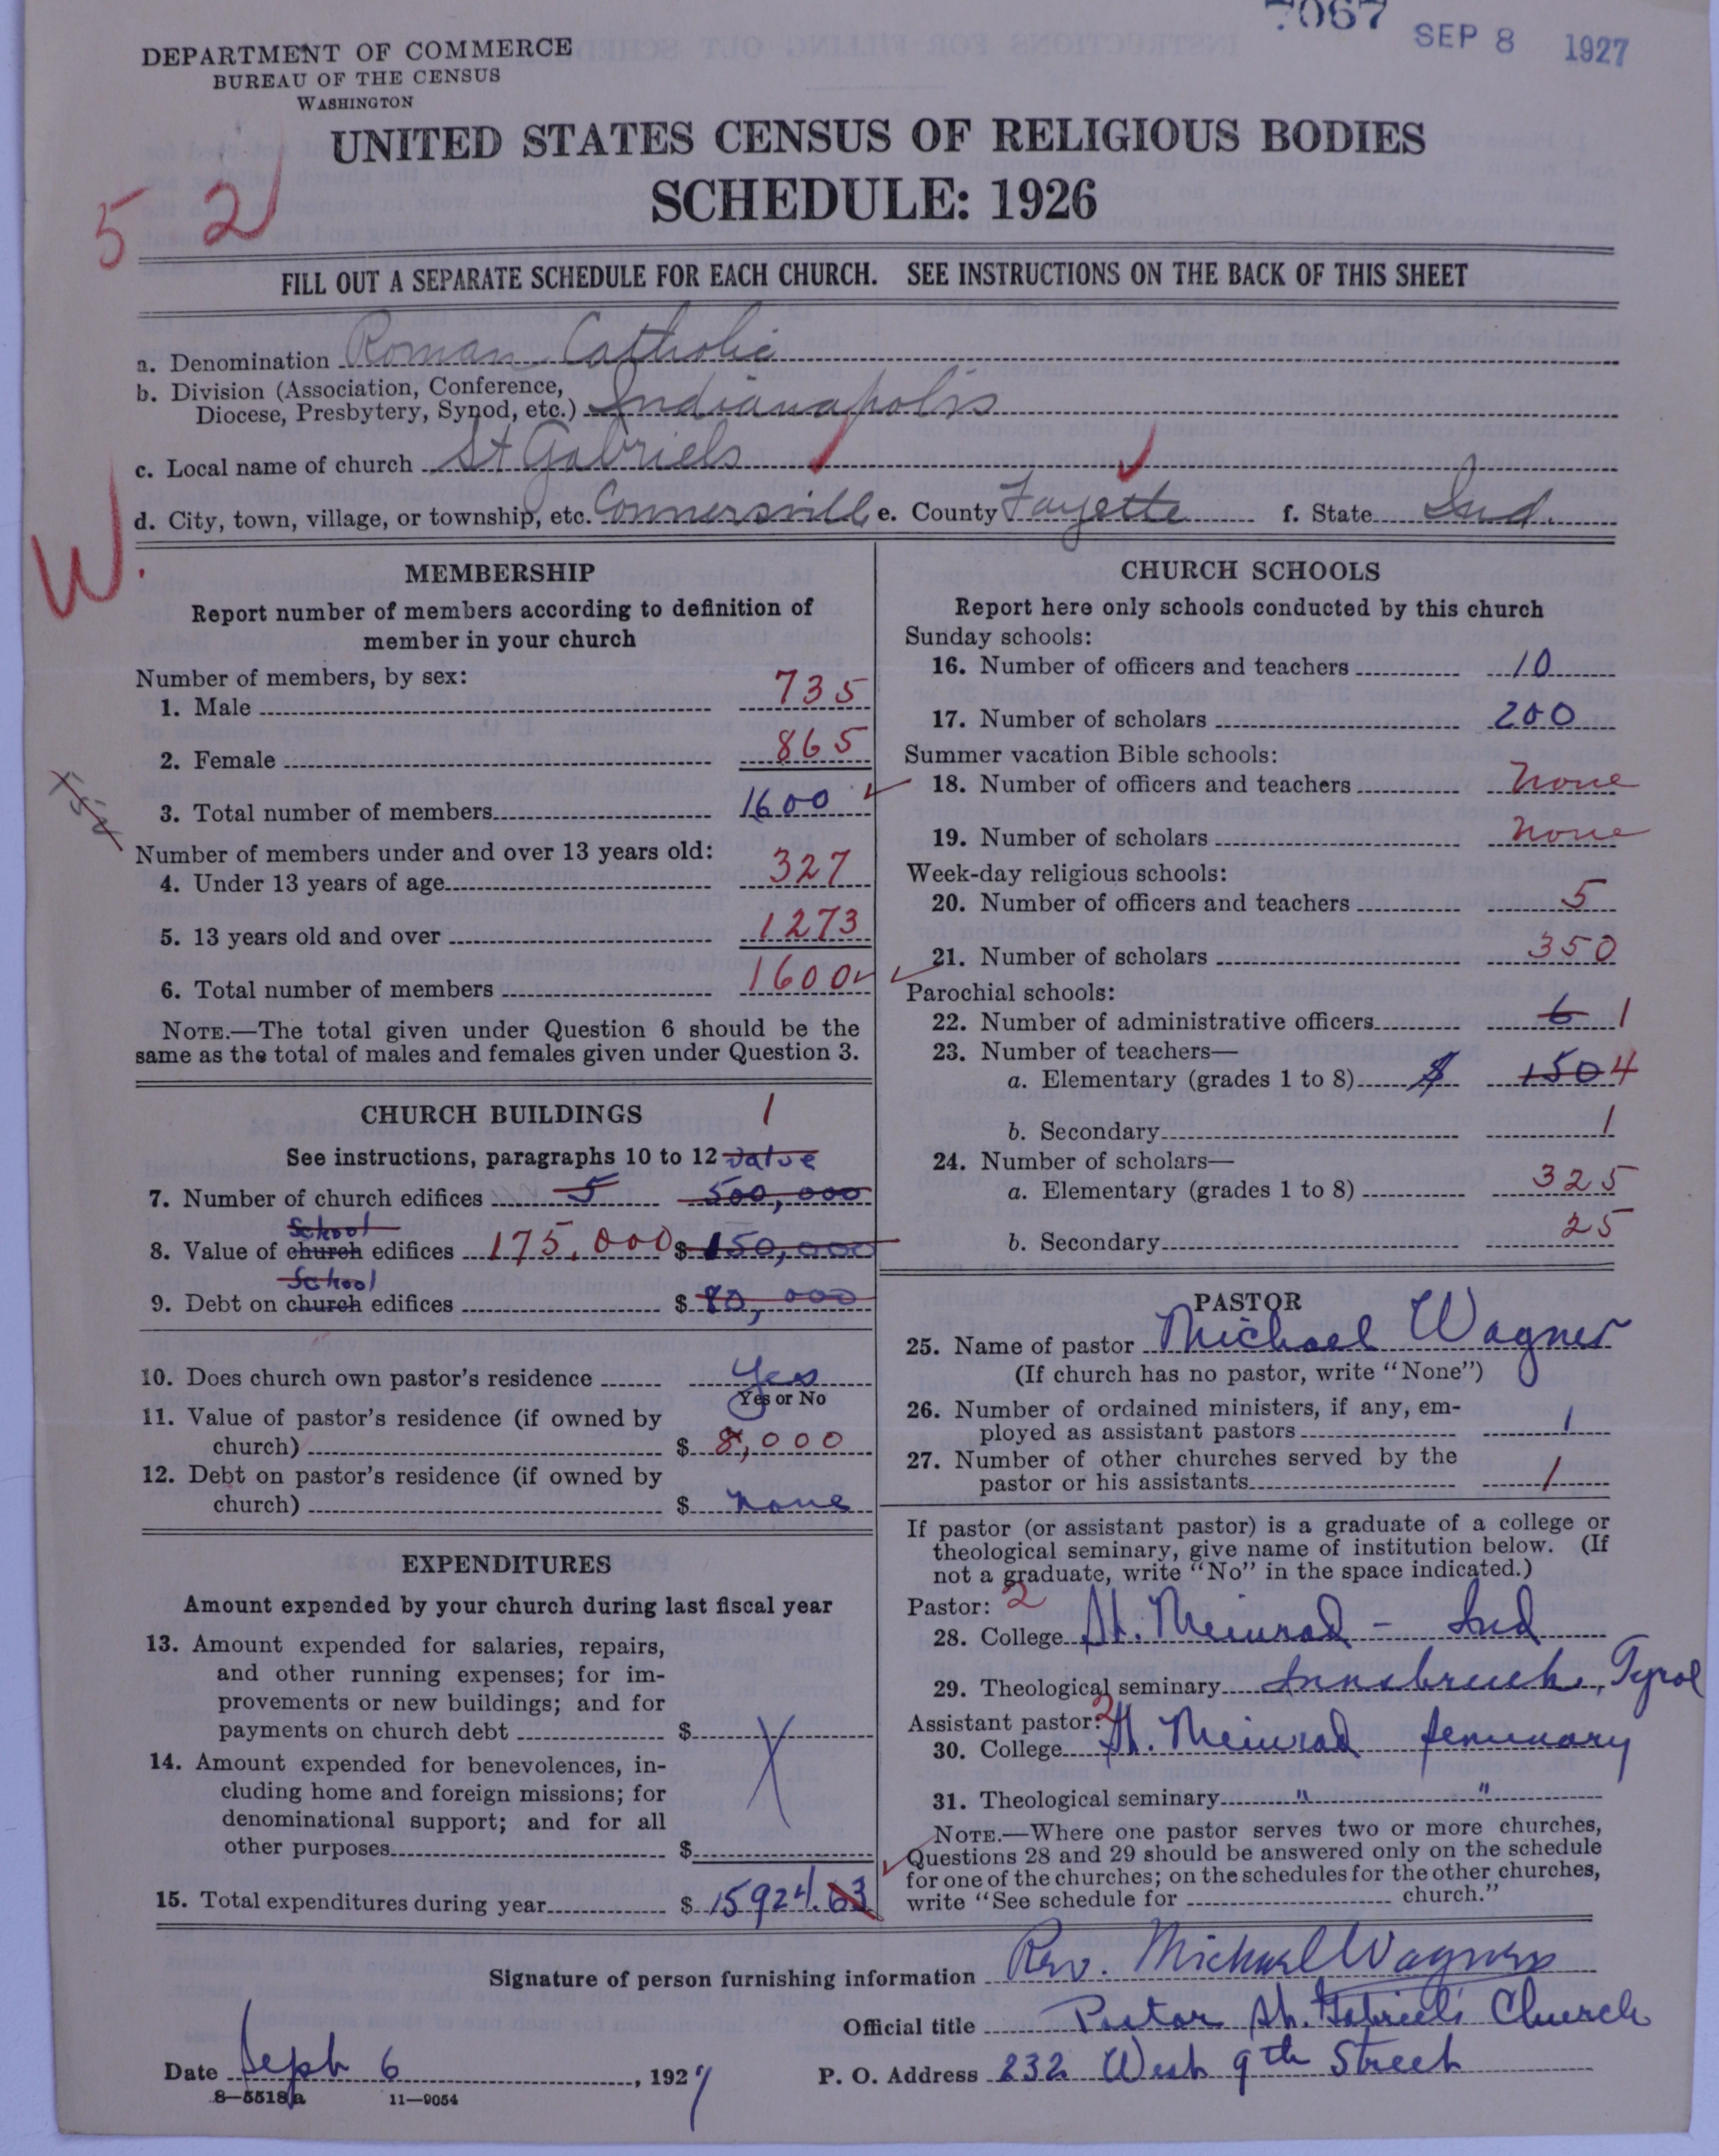 7067 SEP 8 1927
DEPARTMENT OF COMMERCE
BUREAU OF THE CENSUS
WASHINGTON
UNITED STATES CENSUS OF RELIGIOUS BODIES
SCHEDULE: 1926
5 2
FILL OUT A SEPARATE SCHEDULE FOR EACH CHURCH. SEE INSTRUCTIONS ON THE BACK OF THIS SHEET
a. Denomination Roman Catholic
b. Division (Association, Conference,
Diocese, Presbytery, Synod, etc.) Indianapolis
c. Local name of church St Gabriels
d. City, town, village, or township, etc. Connersville e. County Fayette f. State Ind.
W.
MEMBERSHIP
Report number of members according to definition of
member in your church
Number of members, by sex:
1. Male 735
2. Female 865
3. Total number of members 1600
Number of members under and over 13 years old:
4. Under 13 years of age 327
5. 13 years old and over 1273
6. Total number of members 1600
NOTE.—The total given under Question 6 should be the
same as the total of males and females given under Question 3.
CHURCH BUILDINGS 1
See instructions, paragraphs 10 to 12 value
7. Number of church edifices 5 500,000
School
8. Value of church edifices 175,000 $ 150,000
School
9. Debt on church edifices $ 80,000
10. Does church own pastor's residence Yes
Yes or No
11. Value of pastor's residence (if owned by
church) $ 8,000
12. Debt on pastor's residence (if owned by
church) $ none
EXPENDITURES
Amount expended by your church during last fiscal year
13. Amount expended for salaries, repairs,
and other running expenses; for im-
provements or new buildings; and for
payments on church debt $
14. Amount expended for benevolences, in-
cluding home and foreign missions; for
denominational support; and for all
other purposes $
15. Total expenditures during year $ 15924.63
CHURCH SCHOOLS
Report here only schools conducted by this church
Sunday schools:
16. Number of officers and teachers 10
17. Number of scholars 200
Summer vacation Bible schools:
18. Number of officers and teachers none
19. Number of scholars none
Week-day religious schools:
20. Number of officers and teachers 5
21. Number of scholars 350
Parochial schools:
22. Number of administrative officers 6 1
23. Number of teachers—
a. Elementary (grades 1 to 8) 150 4
b. Secondary 1
24. Number of scholars—
a. Elementary (grades 1 to 8) 325
b. Secondary 25
PASTOR
25. Name of pastor Michael Wagner
(If church has no pastor, write "None")
26. Number of ordained ministers, if any, em-
ployed as assistant pastors 1
27. Number of other churches served by the
pastor or his assistants 1
If pastor (or assistant pastor) is a graduate of a college or
theological seminary, give name of institution below. (If
not a graduate, write "No" in the space indicated.)
Pastor: 2
28. College St. Meinrad - Ind
29. Theological seminary Innsbruck, Tyrol
Assistant pastor: 2
30. College St. Meinrad Seminary
31. Theological seminary " "
NOTE.—Where one pastor serves two or more churches,
Questions 28 and 29 should be answered only on the schedule
for one of the churches; on the schedules for the other churches,
write "See schedule for church."
Signature of person furnishing information Rev. Michael Wagner
Official title Pastor St. Gabriel's Church
Date Sept 6, 1927 P. O. Address 232 West 9th Street
8—5518a 11—9054